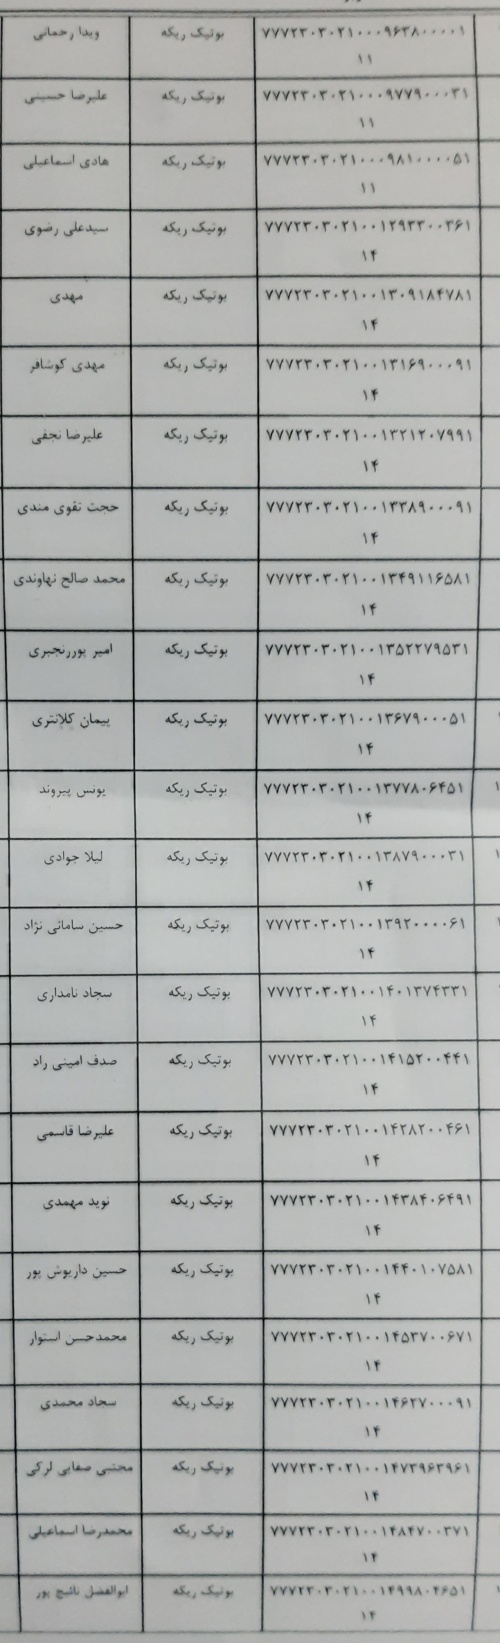 ۷۷۷۲۳۰۳۰۲۱۰۰۰۹۶۳۸۰۰۰۰۱ بوتیک ریکه ویدا رحمانی
۱۱
۷۷۷۲۳۰۳۰۲۱۰۰۰۹۷۷۹۰۰۰۳۱ بوتیک ریکه علیرضا حسینی
۱۱
۷۷۷۲۳۰۳۰۲۱۰۰۰۹۸۱۰۰۰۰۵۱ بوتیک ریکه هادی اسماعیلی
۱۱
۷۷۷۲۳۰۳۰۲۱۰۰۱۲۹۳۳۰۰۳۶۱ بوتیک ریکه سیدعلی رضوی
۱۴
۷۷۷۲۳۰۳۰۲۱۰۰۱۳۰۹۱۸۴۷۸۱ بوتیک ریکه مهدی
۱۴
۷۷۷۲۳۰۳۰۲۱۰۰۱۳۱۶۹۰۰۰۹۱ بوتیک ریکه مهدی کوشافر
۱۴
۷۷۷۲۳۰۳۰۲۱۰۰۱۳۲۱۲۰۷۹۹۱ بوتیک ریکه علیرضا نجفی
۱۴
۷۷۷۲۳۰۳۰۲۱۰۰۱۳۳۸۹۰۰۰۹۱ بوتیک ریکه حجت تقوی مندی
۱۴
۷۷۷۲۳۰۳۰۲۱۰۰۱۳۴۹۱۱۶۵۸۱ بوتیک ریکه محمد صالح نهاوندی
۱۴
۷۷۷۲۳۰۳۰۲۱۰۰۱۳۵۲۲۷۹۵۳۱ بوتیک ریکه امیر پوررنجبری
۱۴
۷۷۷۲۳۰۳۰۲۱۰۰۱۳۶۷۹۰۰۰۵۱ بوتیک ریکه پیمان کلانتری
۱۴
۷۷۷۲۳۰۳۰۲۱۰۰۱۳۷۷۸۰۶۴۵۱ بوتیک ریکه یونس پیروند
۱۴
۷۷۷۲۳۰۳۰۲۱۰۰۱۳۸۷۹۰۰۰۳۱ بوتیک ریکه لیلا جوادی
۱۴
۷۷۷۲۳۰۳۰۲۱۰۰۱۳۹۲۰۰۰۰۶۱ بوتیک ریکه حسین سامانی نژاد
۱۴
۷۷۷۲۳۰۳۰۲۱۰۰۱۴۰۱۳۷۴۳۳۱ بوتیک ریکه سجاد نامداری
۱۴
۷۷۷۲۳۰۳۰۲۱۰۰۱۴۱۵۲۰۰۴۴۱ بوتیک ریکه صدف امینی راد
۱۴
۷۷۷۲۳۰۳۰۲۱۰۰۱۴۲۸۲۰۰۴۶۱ بوتیک ریکه علیرضا قاسمی
۱۴
۷۷۷۲۳۰۳۰۲۱۰۰۱۴۳۸۴۰۶۴۹۱ بوتیک ریکه نوید مهمدی
۱۴
۷۷۷۲۳۰۳۰۲۱۰۰۱۴۴۰۱۰۷۵۸۱ بوتیک ریکه حسین داریوش پور
۱۴
۷۷۷۲۳۰۳۰۲۱۰۰۱۴۵۳۷۰۰۶۷۱ بوتیک ریکه محمدحسن استوار
۱۴
۷۷۷۲۳۰۳۰۲۱۰۰۱۴۶۲۷۰۰۰۹۱ بوتیک ریکه سجاد محمدی
۱۴
۷۷۷۲۳۰۳۰۲۱۰۰۱۴۷۳۹۶۳۹۶۱ بوتیک ریکه مجتبی صفایی لرکی
۱۴
۷۷۷۲۳۰۳۰۲۱۰۰۱۴۸۴۷۰۰۳۷۱ بوتیک ریکه محمدرضا اسماعیلی
۱۴
۷۷۷۲۳۰۳۰۲۱۰۰۱۴۹۹۸۰۴۶۵۱ بوتیک ریکه ابوالفضل نائیج پور
۱۴